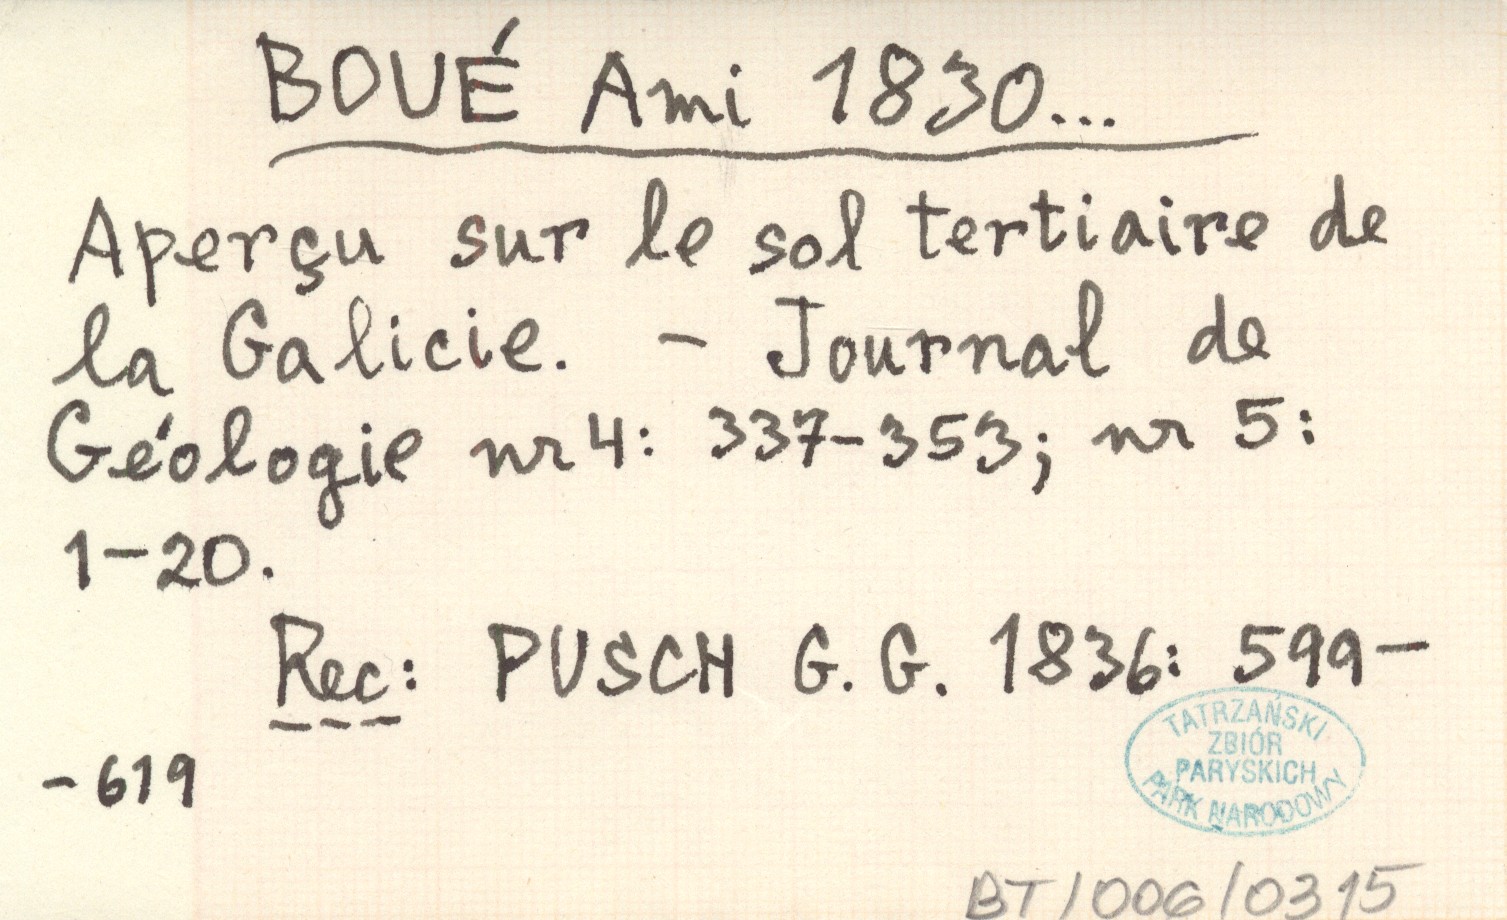 BOUÉ Ami 1830...
Aperçu sur le sol tertiaire de
la Galicie. – Journal de
Géologie nr 4: 337–353; nr 5:
1–20.
Rec: PUSCH G. G. 1836: 599–
–619
TATRZAŃSKI
ZBIÓR
PARYSKICH
PARK NARODOWY
BT/006/0315